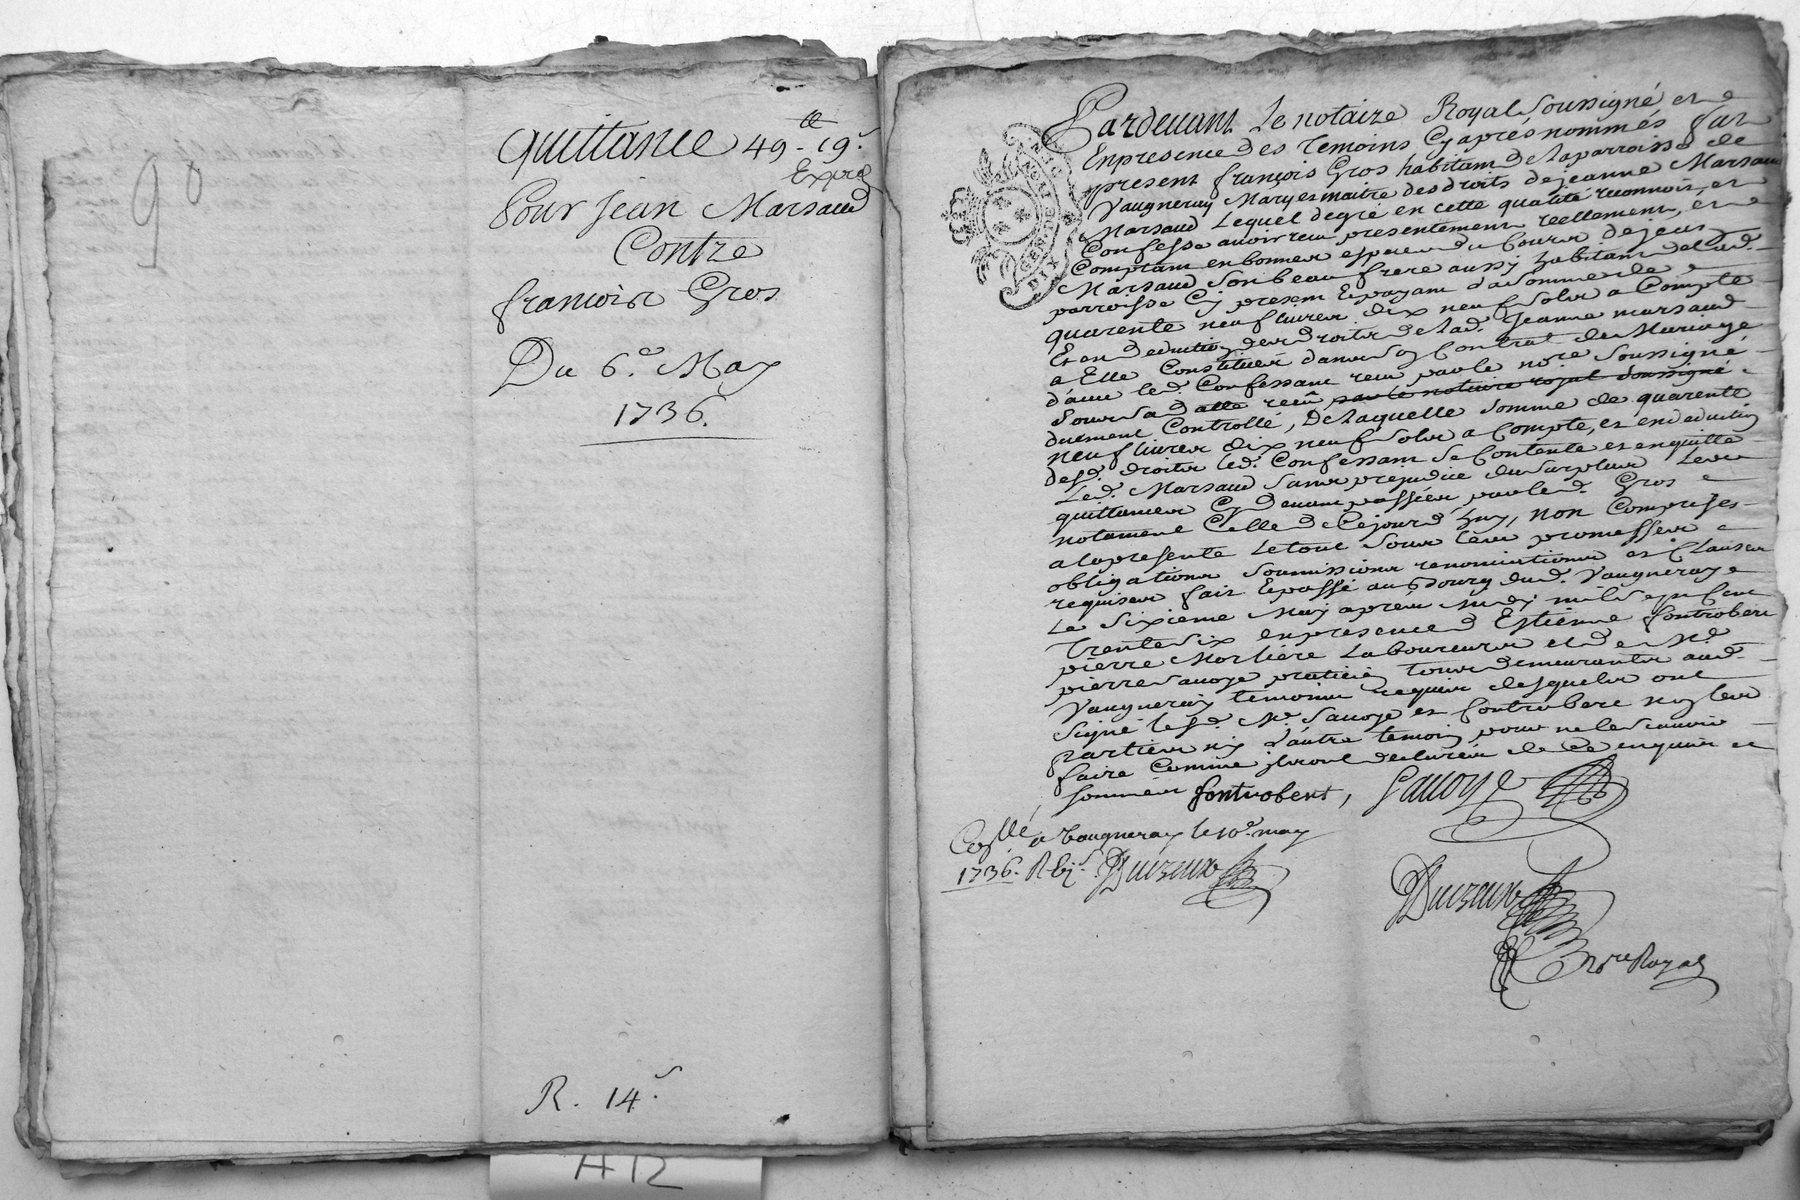 90
Quittance 49ᵗᵗ - 19ˢ
Exped
Pour Jean Marsaud
Contre
francois Gros
Du 6ᵉ. May
1736.
R. 14ˢ.
A12
Pardevant Le notaire Royal soussigné et
Enpresence des Temoins Cyaprés nommés fut
present francois Gros habitant de laparroisse de
Vaugneray Mary et maitre des droits de jeanne Marsaud
Marsaud Lequel degré en cette qualité reconnoit, et
Confesse avoir receu presentement reellement, et
Comptant en bonnes especes du sieur de jean
Marsaud son beaufrere aussy habitant delad.
parroisse Cy present Et payant La somme de
quarente neuf livres dix neuf sols a Compte
Et en deduction des droits de lad. Jeanne marsaud
a Elle Constitués dans son Contrat de Mariage
d'avec led. Confessant receu par le noʳᵉ soussigné
sous sa datte receu par le notaire royal soussigné
duement Controllé, De laquelle somme de quarente
neuf livres dix neuf sols a Compte, et en deduction
desd. droits led. Confessant se Contente et en quitte
Led. Marsaud sans prejudice du surplus Les
quittances Cy devant passées par led. Gros
notament Celle de Cejourd'huy, non Comprises
a la presente Le tout sous les promesses
obligations soumissions renonciations et Clauses
requises fait Et passé au Bourg dud. Vaugneray
Le sixieme May aprés midy mil sept cent
Trente six en presence d'Estienne fontrobert
pierre Morliere Laboureurs et de Mᵉ
pierre Savoye praticien tous demeurants aud.
Vaugneray temoins requis desquels ont
signé lesd. Mᵉ. Savoye et fontrobert non les
parties ny l'autre temoin pour ne le scavoir
faire Comme ils ont declarés de ce enquis et
sommés fontrobert, Savoye
Coˡˡé a Vaugneray le 10ᵉ. may
1736. R
noʳᵉ Royal